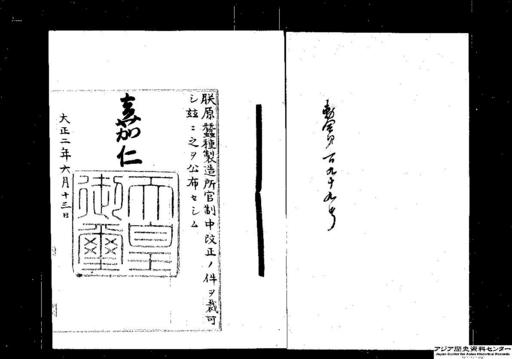 勅令第百九十九号
朕原蠶種製造所官制中改正ノ件ヲ裁可
シ茲ニ之ヲ公布セシム
嘉仁
天皇
御璽
大正二年六月十三日
アジア歴史資料センター
Japan Center for Asian Historical Records